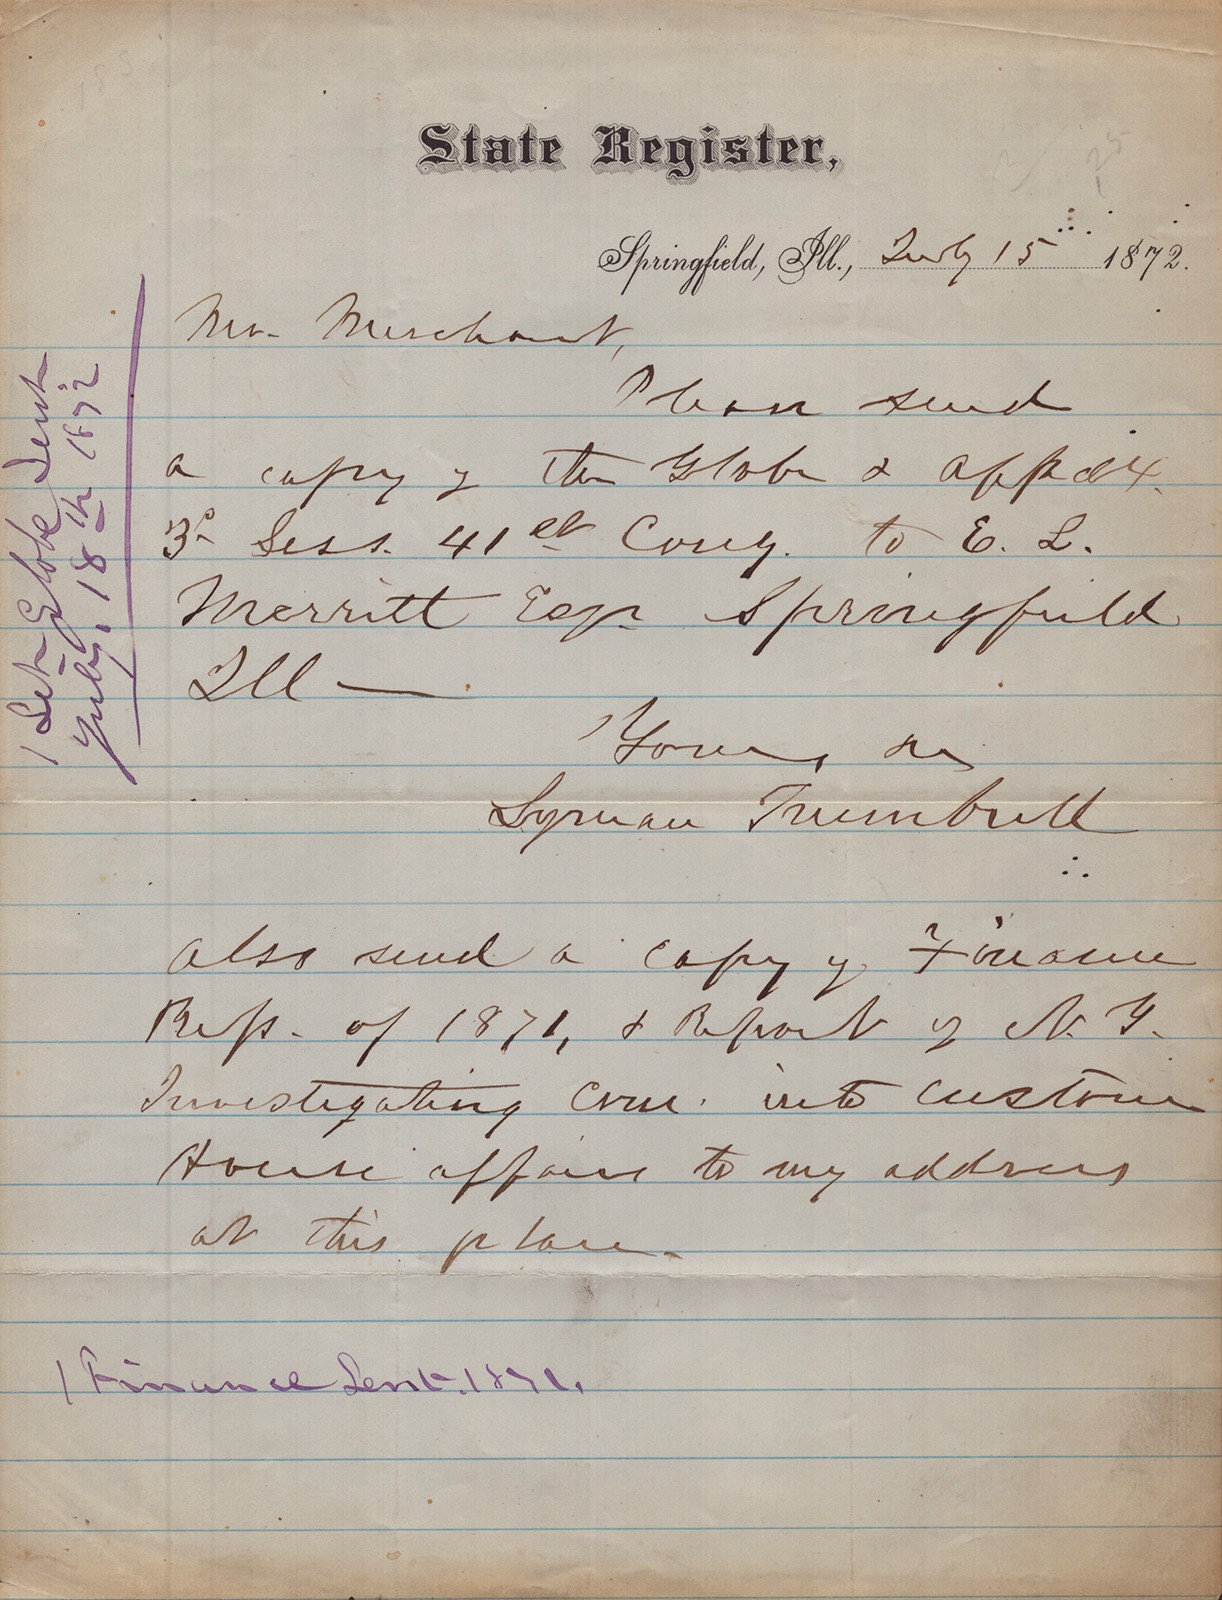 State Register,
Springfield, Ill., July 15 1872.
Mr. Merchant,
Please send
a copy of the Globe & appdx.
3d Sess. 41st Cong. to E. L.
Merritt Esqr Springfield
Ill —
Yours, &c
Lyman Trumbull
also send a copy of Finance
Rep. of 1871, & Report of N. Y.
Investigating Com. into Custom
House affairs to my address
at this place.
1 Finance Sent. 1871.
1 Set Globe Sent
July, 18th 1872